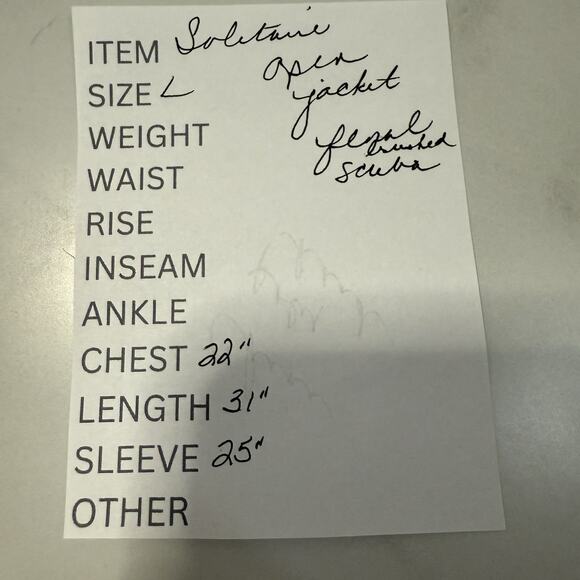 ITEM Solitaire
open
jacket
SIZE L
floral
brushed
scuba
WEIGHT
WAIST
RISE
INSEAM
ANKLE
CHEST 22"
LENGTH 31"
SLEEVE 25"
OTHER